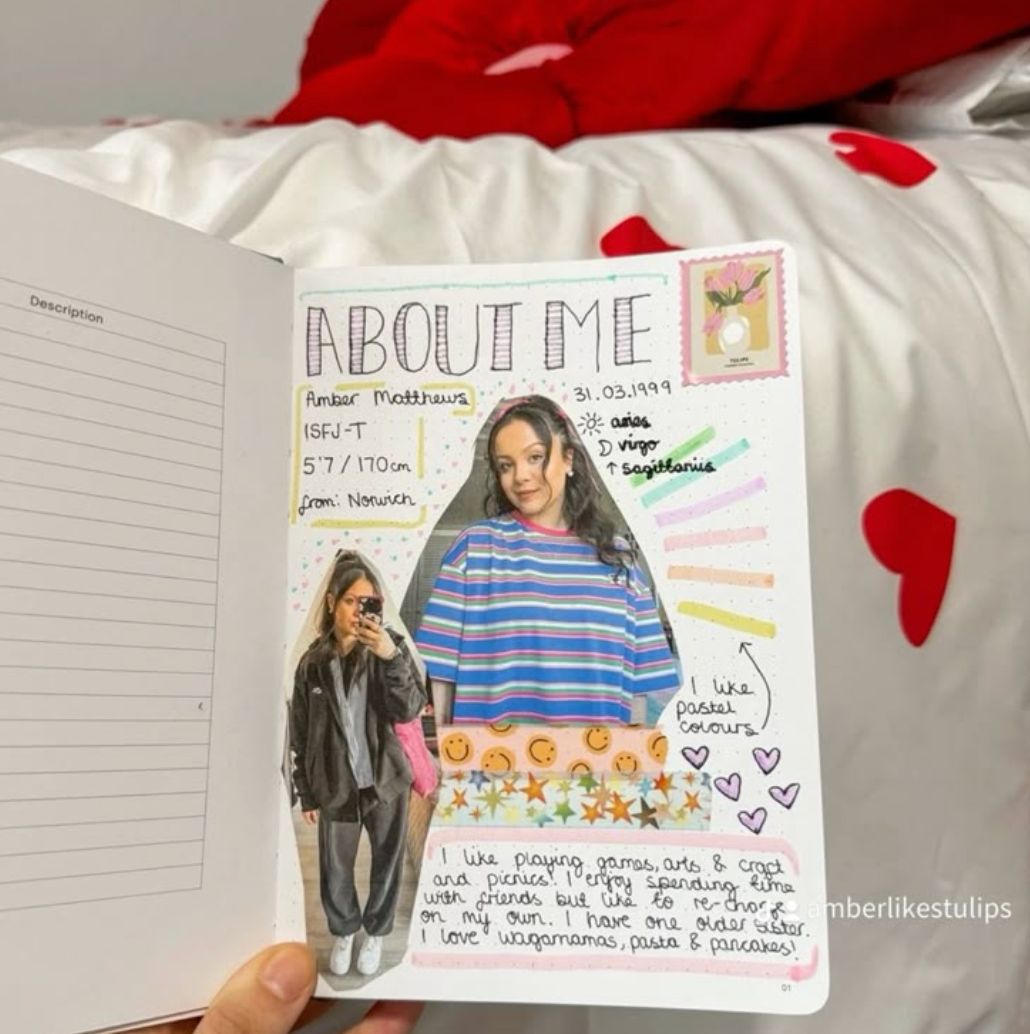 Description
ABOUT ME
Amber Matthews
ISFJ-T
5'7 / 170cm
from: Norwich
31.03.1999
aries
virgo
↑ sagittarius
TULIPE
I like
pastel
colours
I like playing games, arts & craft
and picnics! I enjoy spending time
with friends but like to re-charge
on my own. I have one older sister.
I love wagamamas, pasta & pancakes!
01
amberlikestulips